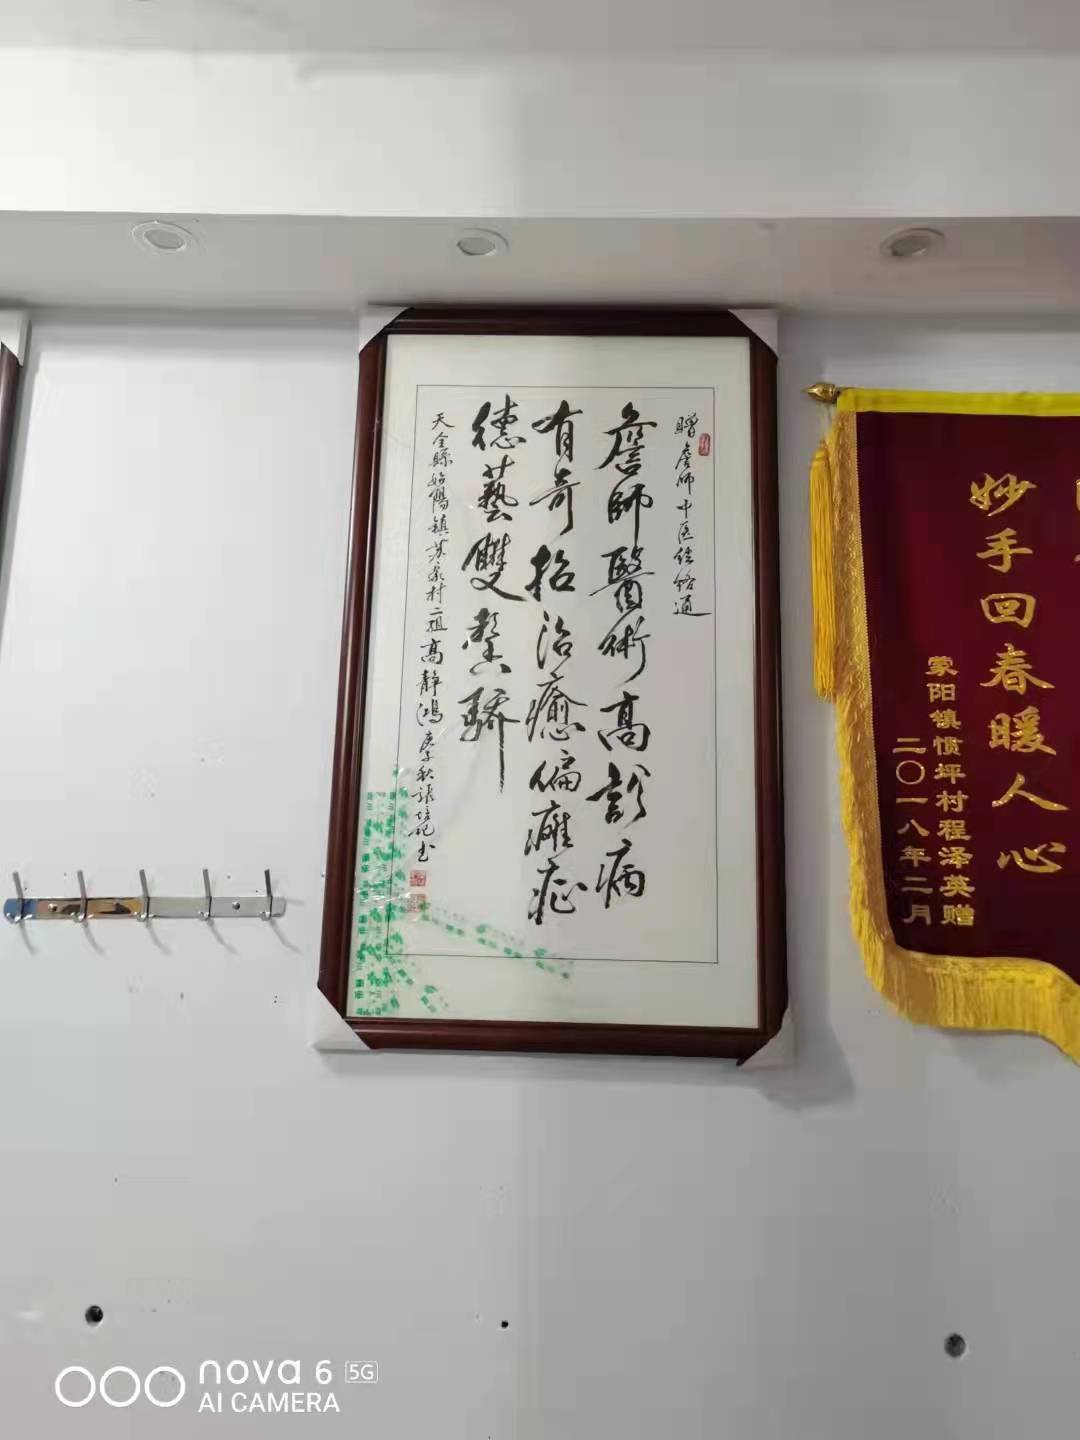 贈詹师中医经络通
詹師醫術高診病
有奇招治癒偏癱症
德藝雙馨驕
天全縣始陽鎮苏家村二组高静鴻
庚子秋張培记书
妙手回春暖人心
蒙阳镇惯坪村程泽英赠
二〇一八年二月
nova 6 5G
AI CAMERA